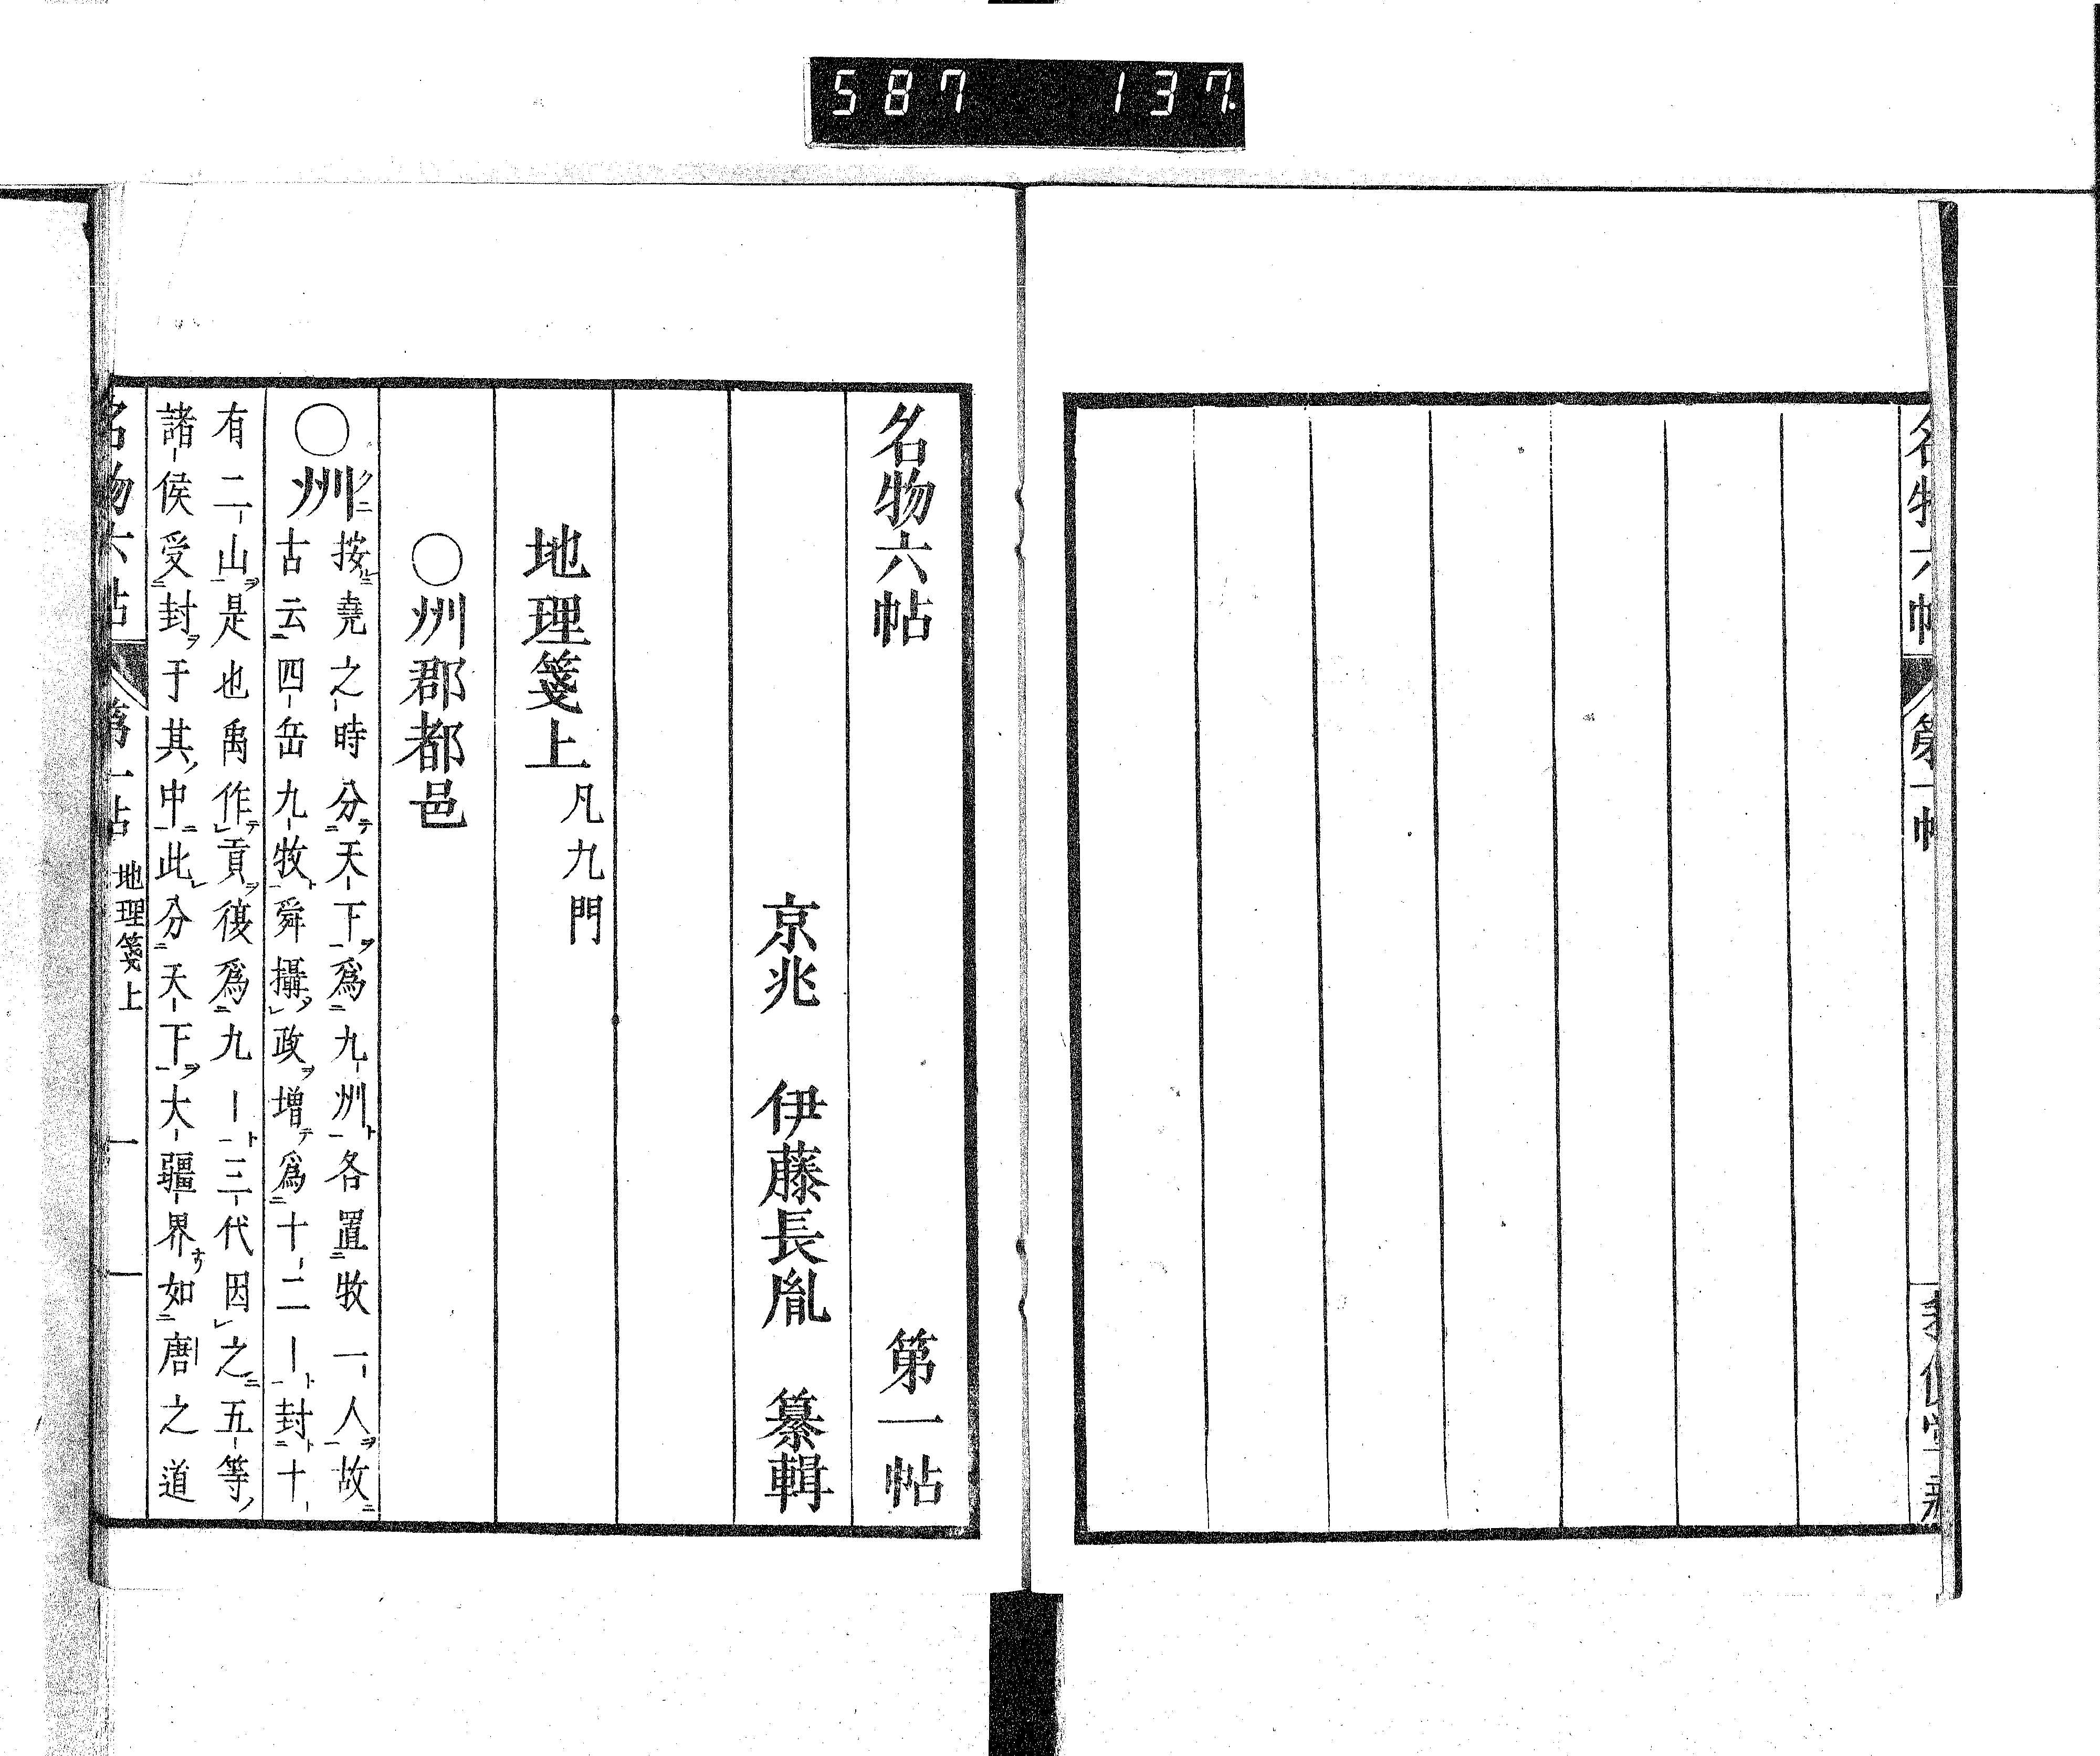 587 137
名物六帖 第一帖
京兆 伊藤長胤 纂輯
地理箋上 凡九門
○州郡都邑
○州 クニ
按堯之時分天下爲九州各置牧一人故
古云四岳九牧舜攝政增爲十二―封十
有二山是也禹作貢復爲九―三代因之五等
諸侯受封于其中此分天下大疆界如唐之道
名物六帖 第一帖 地理箋上 一 一
名物六帖 第一帖